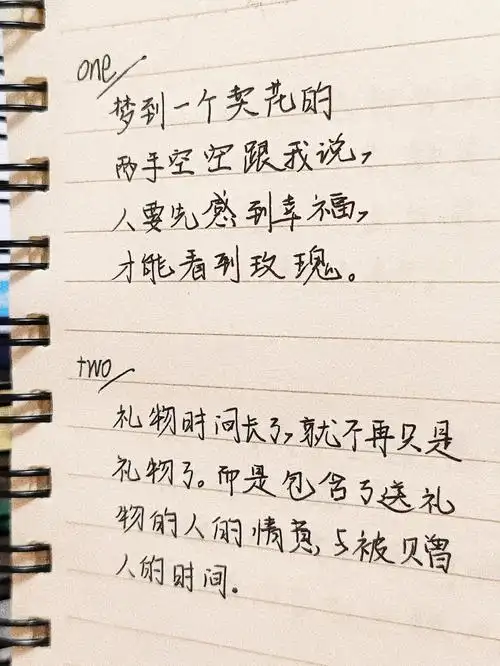 one/
梦到一个卖花的
两手空空跟我说,
人要先感到幸福,
才能看到玫瑰。
two/
礼物时间长了,就不再只是
礼物了。而是包含了送礼
物的人的情意,与被赠
人的时间.